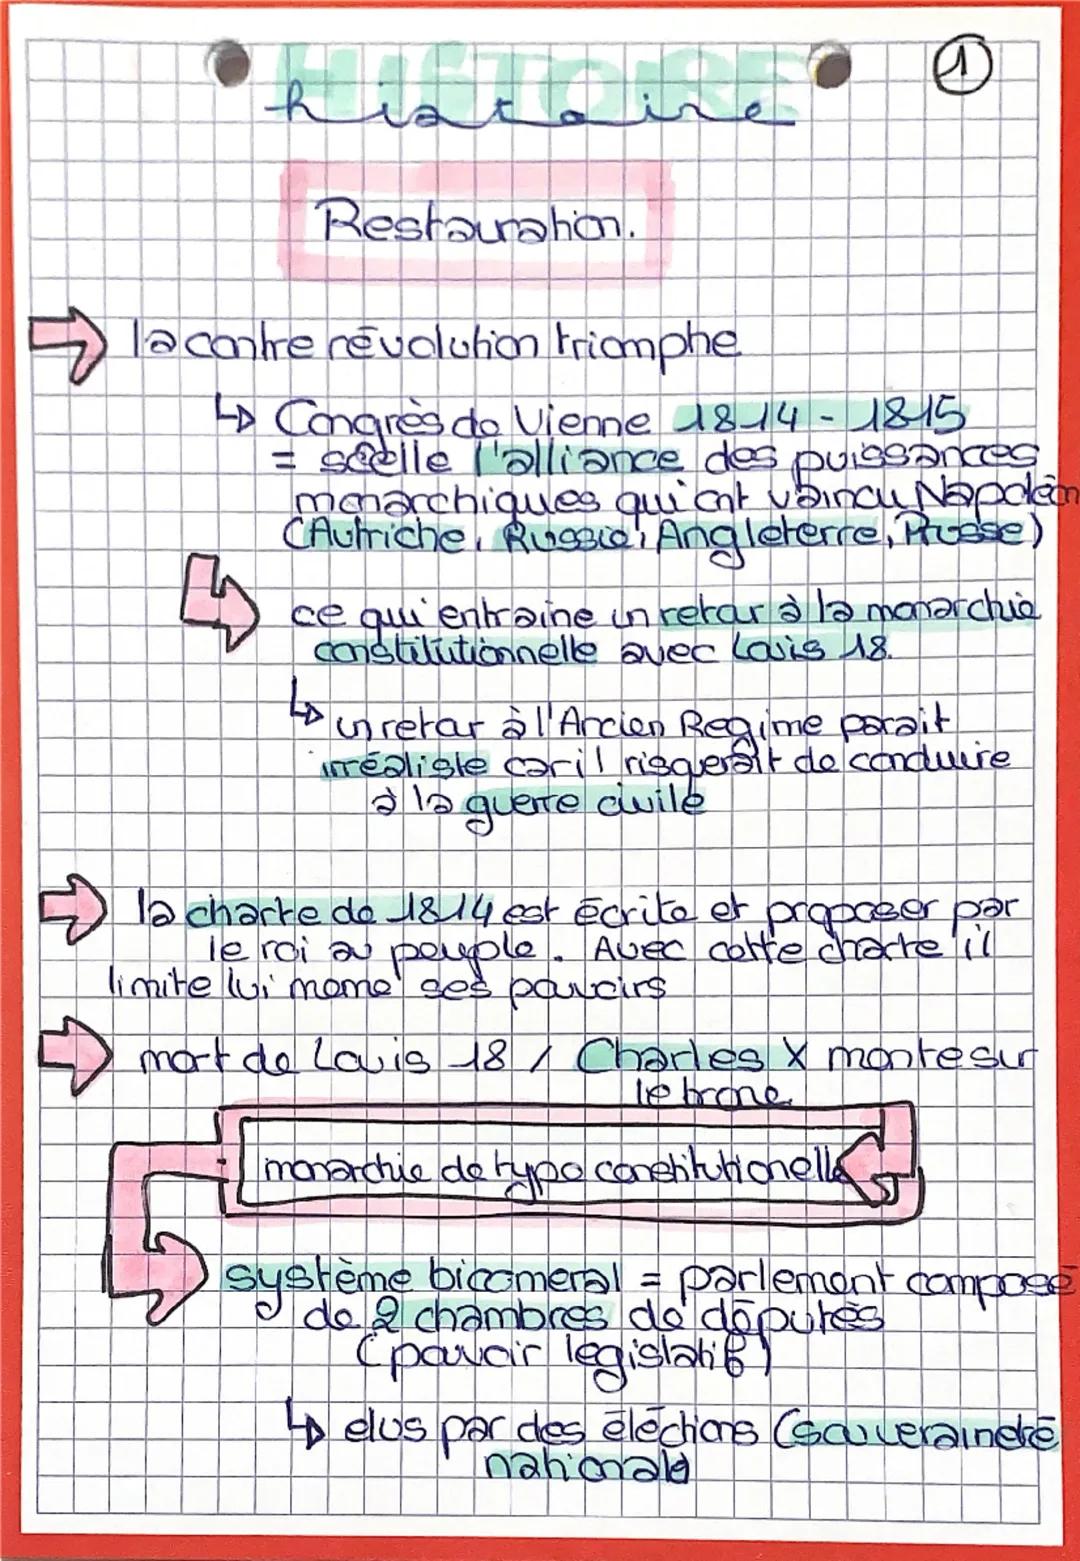 HISTOIRE
histoire
1
Restauration.
la contre révolution triomphe
↳ Congrès de Vienne 1814 - 1815
= scelle l'alliance des puissances
monarchiques qui ont vaincu Napoléon
(Autriche, Russie, Angleterre, Prusse)
ce qui entraine un retour à la monarchie
constitutionnelle avec Louis 18.
↳ un retour à l'Ancien Regime parait
irréaliste car il risquerait de conduire
à la guerre civile
la charte de 1814 est écrite et proposer par
le roi au peuple. Avec cette charte il
limite lui meme ses pouvoirs
mort de Louis 18 / Charles X monte sur
le trone
monarchie de type constitutionelle
système bicameral = parlement composé
de 2 chambres de députés
(pouvoir legislatif)
↳ elus par des éléctions (souveraineté
nationale